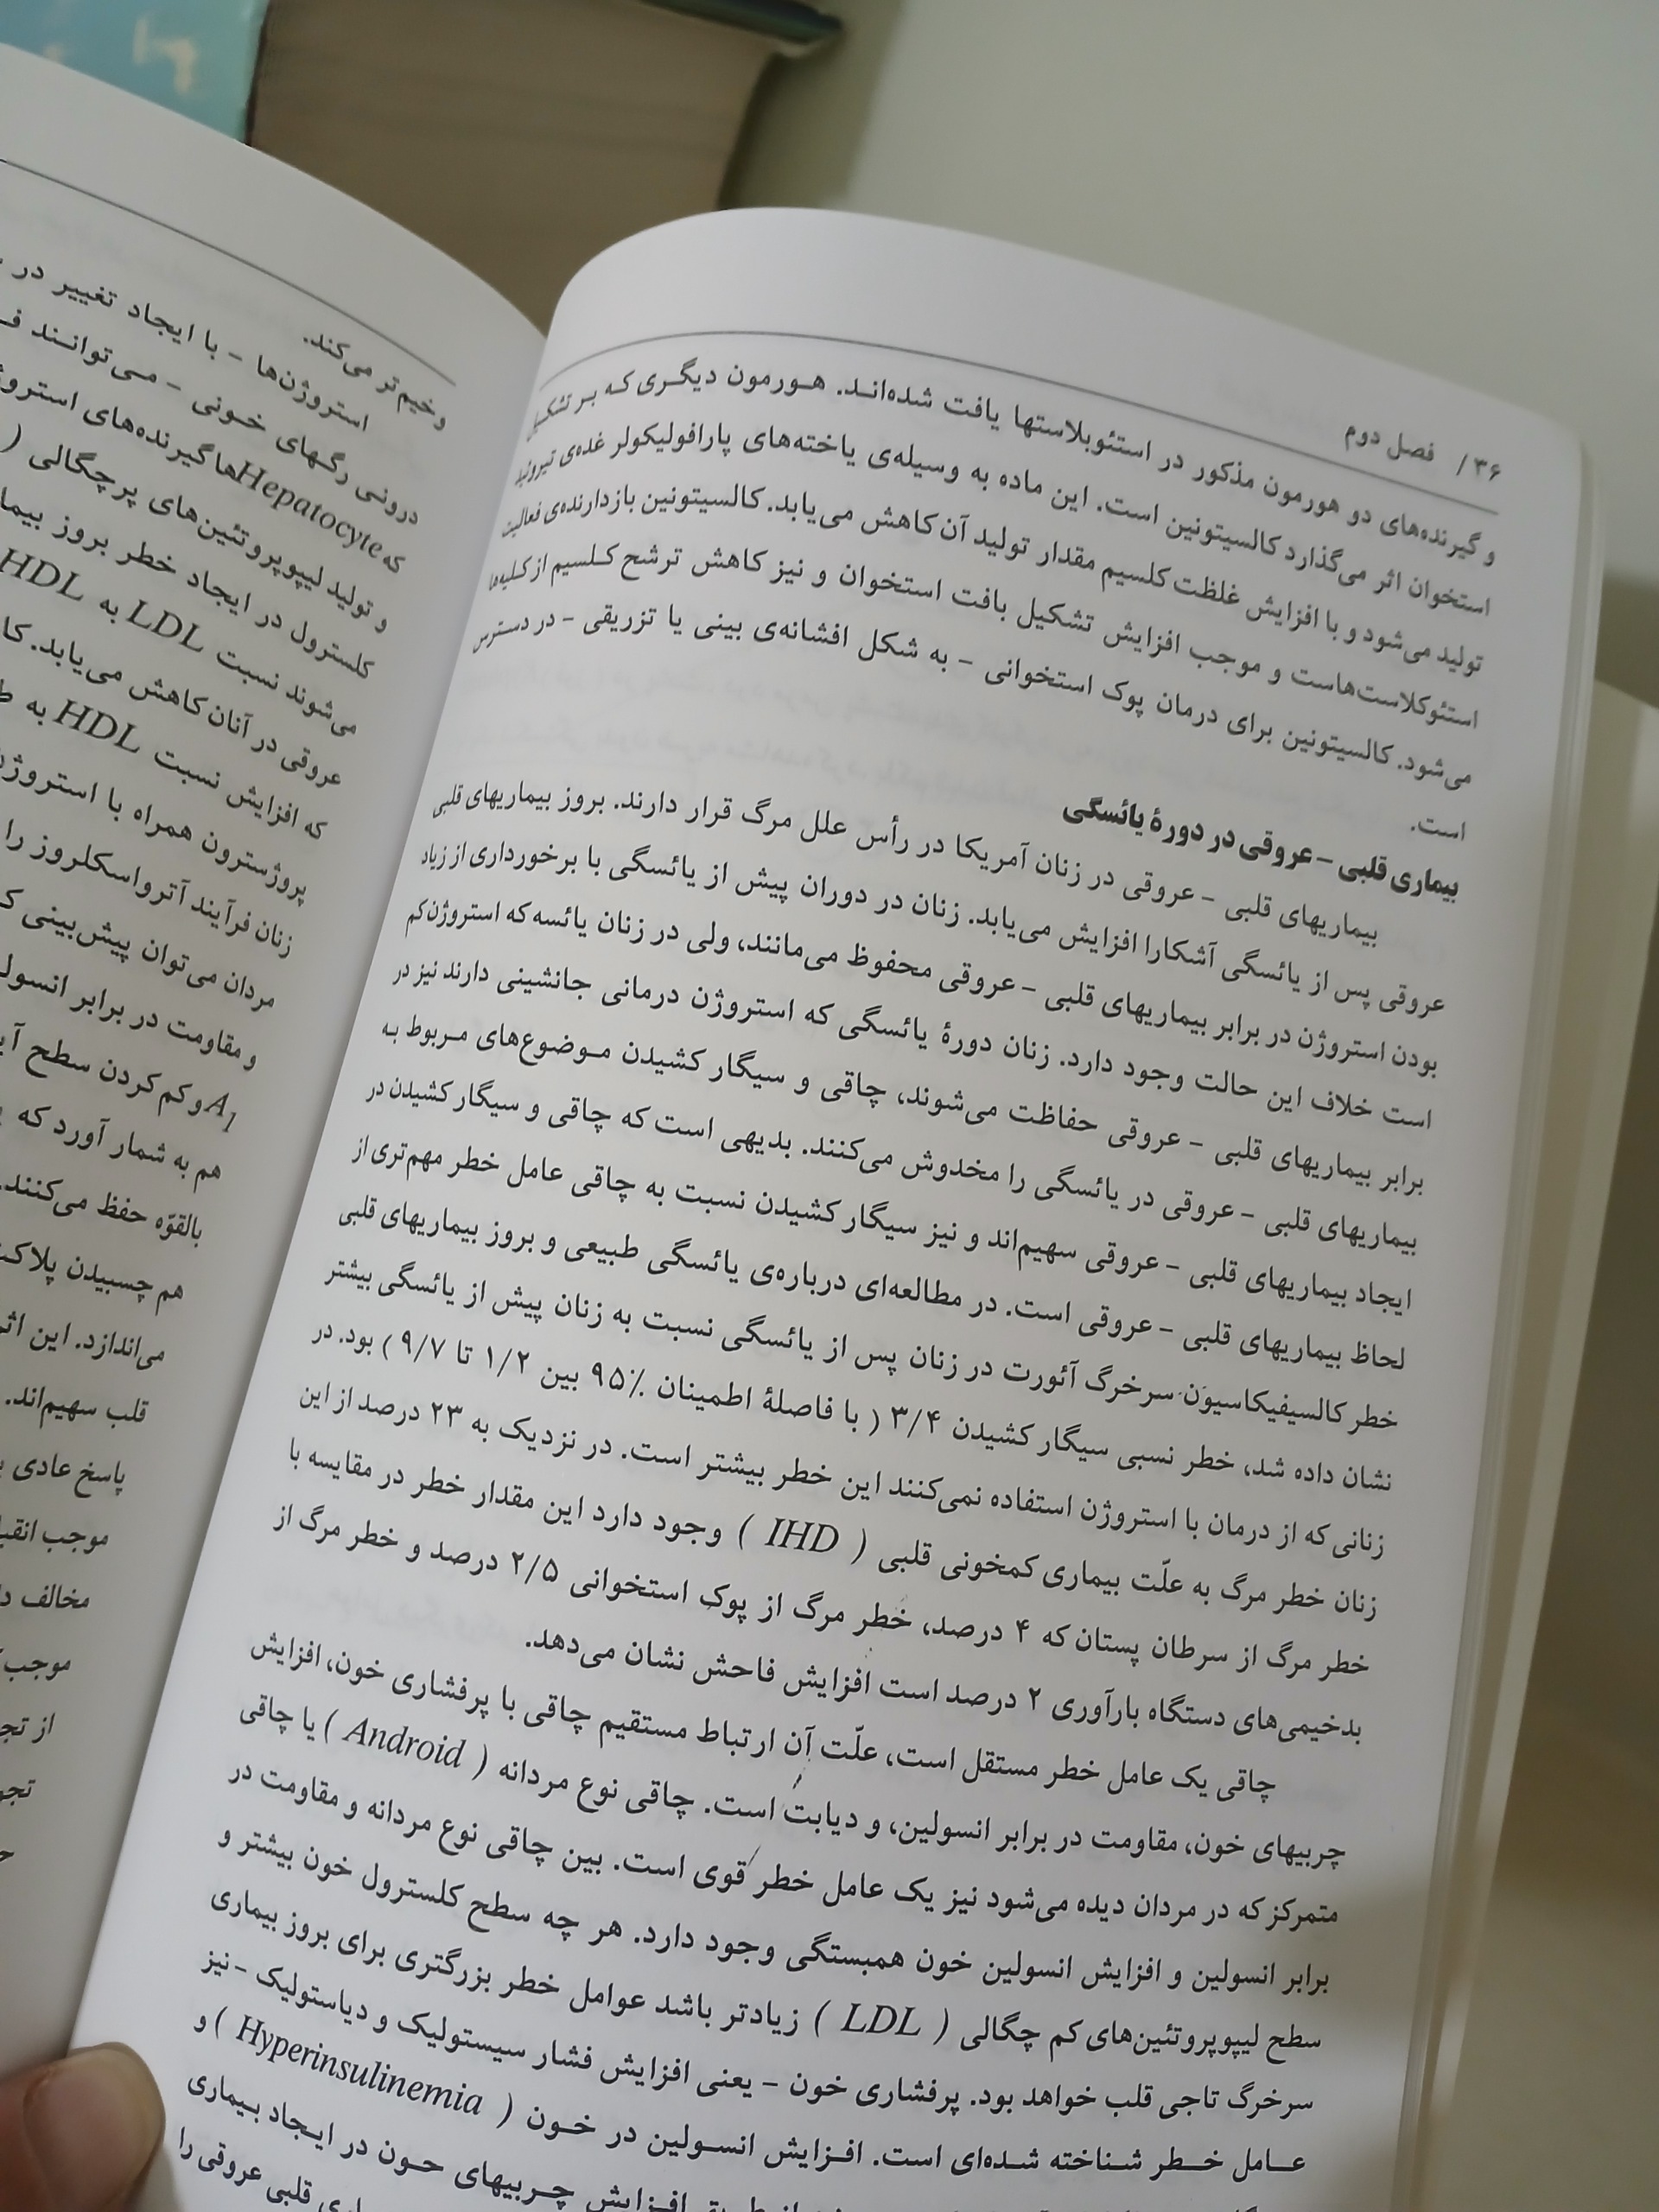 ۳۶ / فصل دوم
و گیرنده‌های دو هورمون مذکور در استئوبلاستها یافت شده‌اند. هورمون دیگری که بر تشکیل
استخوان اثر می‌گذارد کالسیتونین است. این ماده به وسیله‌ی یاخته‌های پارافولیکولر غده‌ی تیروئید
تولید می‌شود و با افزایش غلظت کلسیم مقدار تولید آن کاهش می‌یابد. کالسیتونین بازدارنده‌ی فعالیت
استئوکلاست‌هاست و موجب افزایش تشکیل بافت استخوان و نیز کاهش ترشح کلسیم از کلیه‌ها
می‌شود. کالسیتونین برای درمان پوک استخوانی - به شکل افشانه‌ی بینی یا تزریقی - در دسترس
است.
بیماری قلبی - عروقی در دورهٔ یائسگی
بیماریهای قلبی - عروقی در زنان آمریکا در رأس علل مرگ قرار دارند. بروز بیماریهای قلبی
عروقی پس از یائسگی آشکارا افزایش می‌یابد. زنان در دوران پیش از یائسگی با برخورداری از زیاد
بودن استروژن در برابر بیماریهای قلبی - عروقی محفوظ می‌مانند، ولی در زنان یائسه که استروژن کم
است خلاف این حالت وجود دارد. زنان دورهٔ یائسگی که استروژن درمانی جانشینی دارند نیز در
برابر بیماریهای قلبی - عروقی حفاظت می‌شوند، چاقی و سیگار کشیدن موضوع‌های مربوط به
بیماریهای قلبی - عروقی در یائسگی را مخدوش می‌کنند. بدیهی است که چاقی و سیگار کشیدن در
ایجاد بیماریهای قلبی - عروقی سهیم‌اند و نیز سیگار کشیدن نسبت به چاقی عامل خطر مهم‌تری از
لحاظ بیماریهای قلبی - عروقی است. در مطالعه‌ای درباره‌ی یائسگی طبیعی و بروز بیماریهای قلبی
خطر کالسیفیکاسیون سرخرگ آئورت در زنان پس از یائسگی نسبت به زنان پیش از یائسگی بیشتر
نشان داده شد، خطر نسبی سیگار کشیدن ۳/۴ ( با فاصلهٔ اطمینان ۹۵٪ بین ۱/۲ تا ۹/۷ ) بود. در
زنانی که از درمان با استروژن استفاده نمی‌کنند این خطر بیشتر است. در نزدیک به ۲۳ درصد از این
زنان خطر مرگ به علّت بیماری کمخونی قلبی ( IHD ) وجود دارد این مقدار خطر در مقایسه با
خطر مرگ از سرطان پستان که ۴ درصد، خطر مرگ از پوک استخوانی ۲/۵ درصد و خطر مرگ از
بدخیمی‌های دستگاه بارآوری ۲ درصد است افزایش فاحش نشان می‌دهد.
چاقی یک عامل خطر مستقل است، علّت آن ارتباط مستقیم چاقی با پرفشاری خون، افزایش
چربیهای خون، مقاومت در برابر انسولین، و دیابت است. چاقی نوع مردانه ( Android ) یا چاقی
متمرکز که در مردان دیده می‌شود نیز یک عامل خطر قوی است. بین چاقی نوع مردانه و مقاومت در
برابر انسولین و افزایش انسولین خون همبستگی وجود دارد. هر چه سطح کلسترول خون بیشتر و
سطح لیپوپروتئین‌های کم چگالی ( LDL ) زیادتر باشد عوامل خطر بزرگتری برای بروز بیماری
سرخرگ تاجی قلب خواهد بود. پرفشاری خون - یعنی افزایش فشار سیستولیک و دیاستولیک - نیز
عامل خطر شناخته شده‌ای است. افزایش انسولین در خون ( Hyperinsulinemia ) و
افزایش چربیهای خون در ایجاد بیماری
قلبی عروقی را
وخیم‌تر می‌کند.
استروژن‌ها - با ایجاد تغییر در
درونی رگهای خونی - می‌توانند
که Hepatocyteها گیرنده‌های
و تولید لیپوپروتئین‌های پرچگالی (
کلسترول در ایجاد خطر بروز
می‌شوند نسبت LDL به HDL
عروقی در آنان کاهش می‌یابد.
که افزایش نسبت HDL به
پروژسترون همراه با
زنان فرآیند آترواسکلروز را
مردان می‌توان پیش‌بینی
و مقاومت در برابر
A1 و کم کردن سطح
هم به شمار آورد که
بالقوّه حفظ می‌کنند.
هم چسبیدن
می‌اندازد. این
قلب سهیم‌اند.
پاسخ عادی
موجب
مخالف
موجب
از